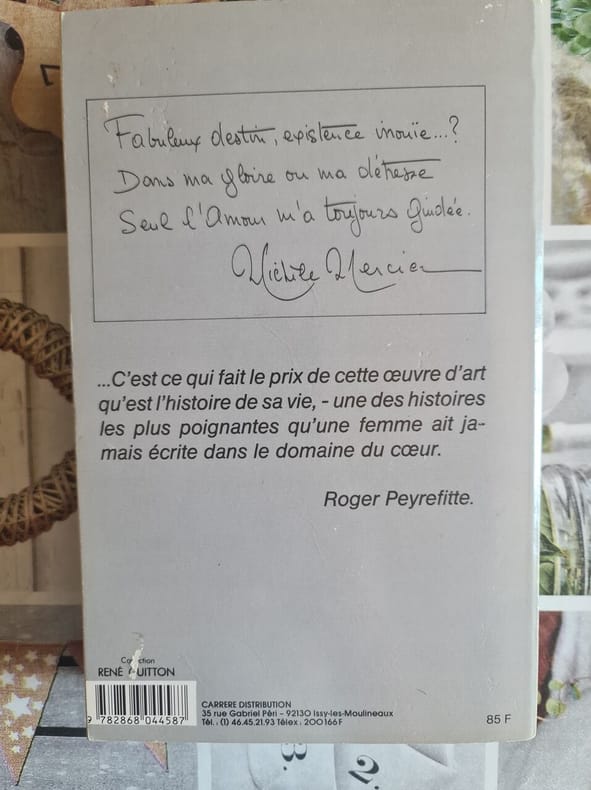 Fabuleux destin, existence inouïe...?
Dans ma gloire ou ma détresse
Seul l'Amour m'a toujours guidée.
Michèle Mercier
...C'est ce qui fait le prix de cette œuvre d'art
qu'est l'histoire de sa vie, - une des histoires
les plus poignantes qu'une femme ait ja-
mais écrite dans le domaine du cœur.
Roger Peyrefitte.
RENÉ GUITTON
9 782868 044587
CARRERE DISTRIBUTION
35 rue Gabriel Péri - 92130 Issy-les-Moulineaux
Tél. : (1) 46.45.21.93 Télex : 200166F
85 F
3
2